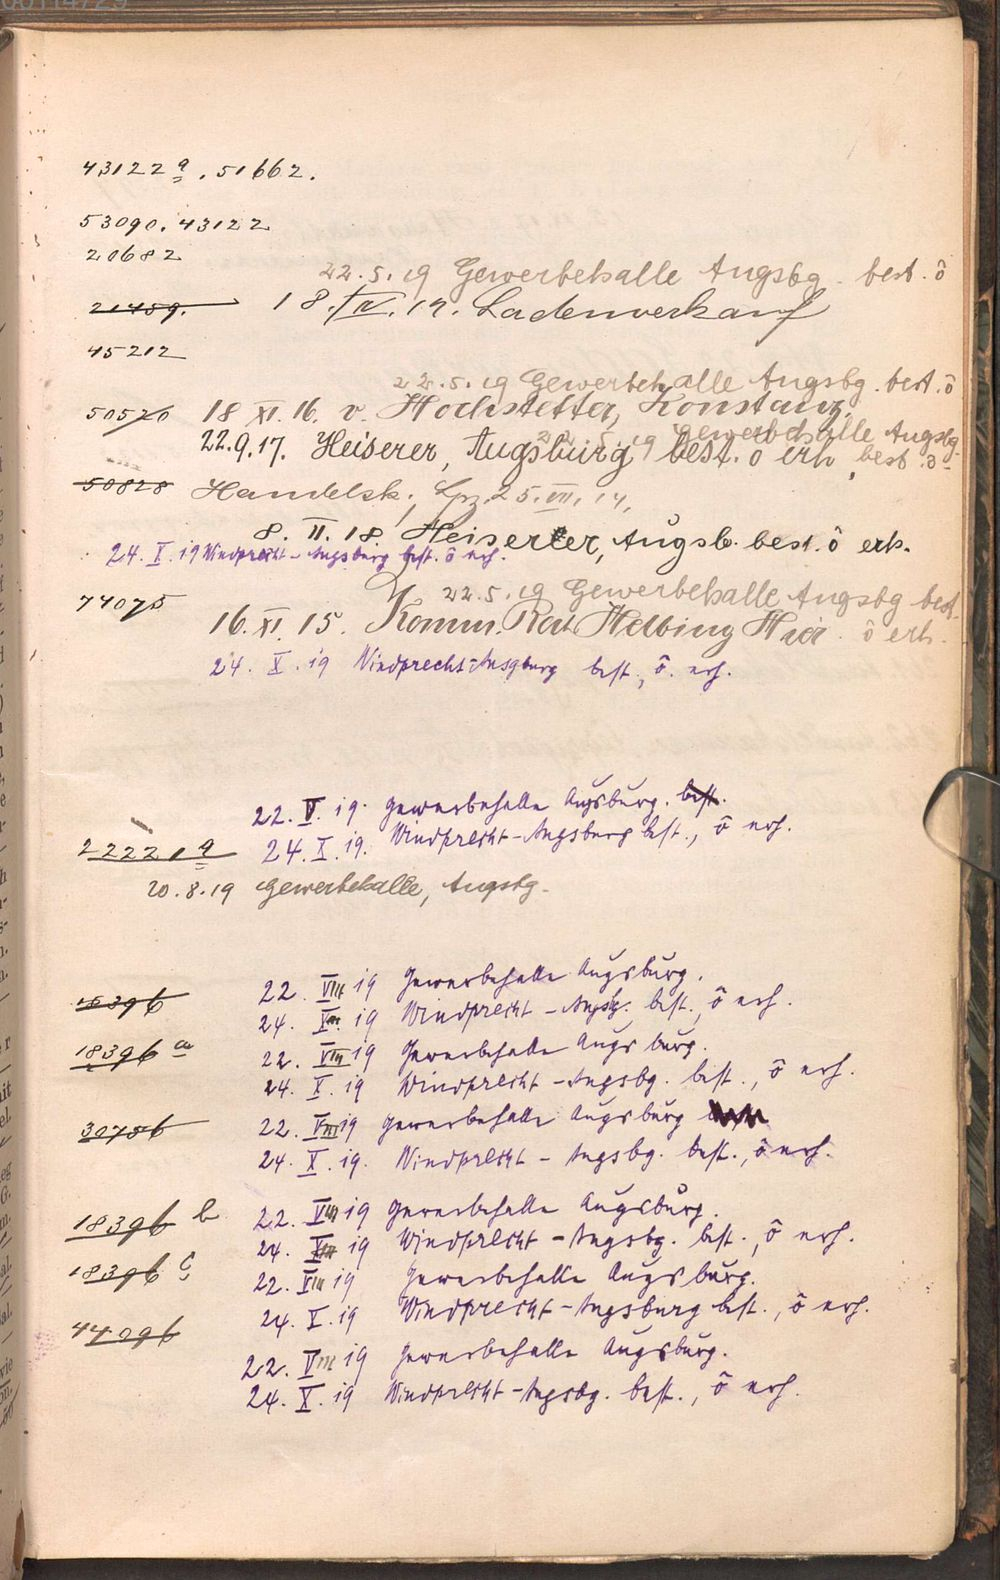 00114729
43122 a. 51662.
53090. 43122
20682
22.5.19 Gewerbehalle Augsbg. best. ô
21459. 18. IV. 19. Ladenverkauf
45212
22.5.19 Gewerbehalle Augsbg. best. ô
50520 18 XI. 16. v. Hochstetter, Konstanz.
22.5.19 Gewerbehalle Augsbg.
22.9.17. Heiserer, Augsburg best. o erh best. ô
50828 Handelsk. Lpz. 25. VII. 14,
8. II. 18. Heiserer, Augsb. best. ô erh.
24. X. 19 Windprecht-Augsburg best. ô erh.
22.5.19 Gewerbehalle Augsbg best.
74075 16. XI. 15. Komm. Rat Helbing Hier. ô erh.
24. X. 19 Windprecht-Augsburg best., ô. erh.
22. V. 19. Gewerbehalle Augsburg. best.
2222 a 24. X. 19. Windprecht-Augsburg best., ô erh.
20.8.19 Gewerbehalle, Augsbg.
22. VIII 19 Gewerbehalle Augsburg.
18396 24. X. 19 Windprecht-Augsbg. best., ô erh.
18396 a 22. VIII 19 Gewerbehalle Augsburg.
24. X. 19 Windprecht-Augsbg. best., ô erh.
30756 22. VIII 19 Gewerbehalle Augsburg
24. X. 19. Windprecht - Augsbg. best., ô erh.
18396 b 22. VIII 19 Gewerbehalle Augsburg.
24. X 19 Windprecht-Augsbg. best., ô erh.
18396 c 22. VIII 19 Gewerbehalle Augsburg.
24. X. 19 Windprecht-Augsburg best., ô erh.
44096
22. VIII 19 Gewerbehalle Augsburg.
24. X. 19 Windprecht-Augsbg. best., ô erh.